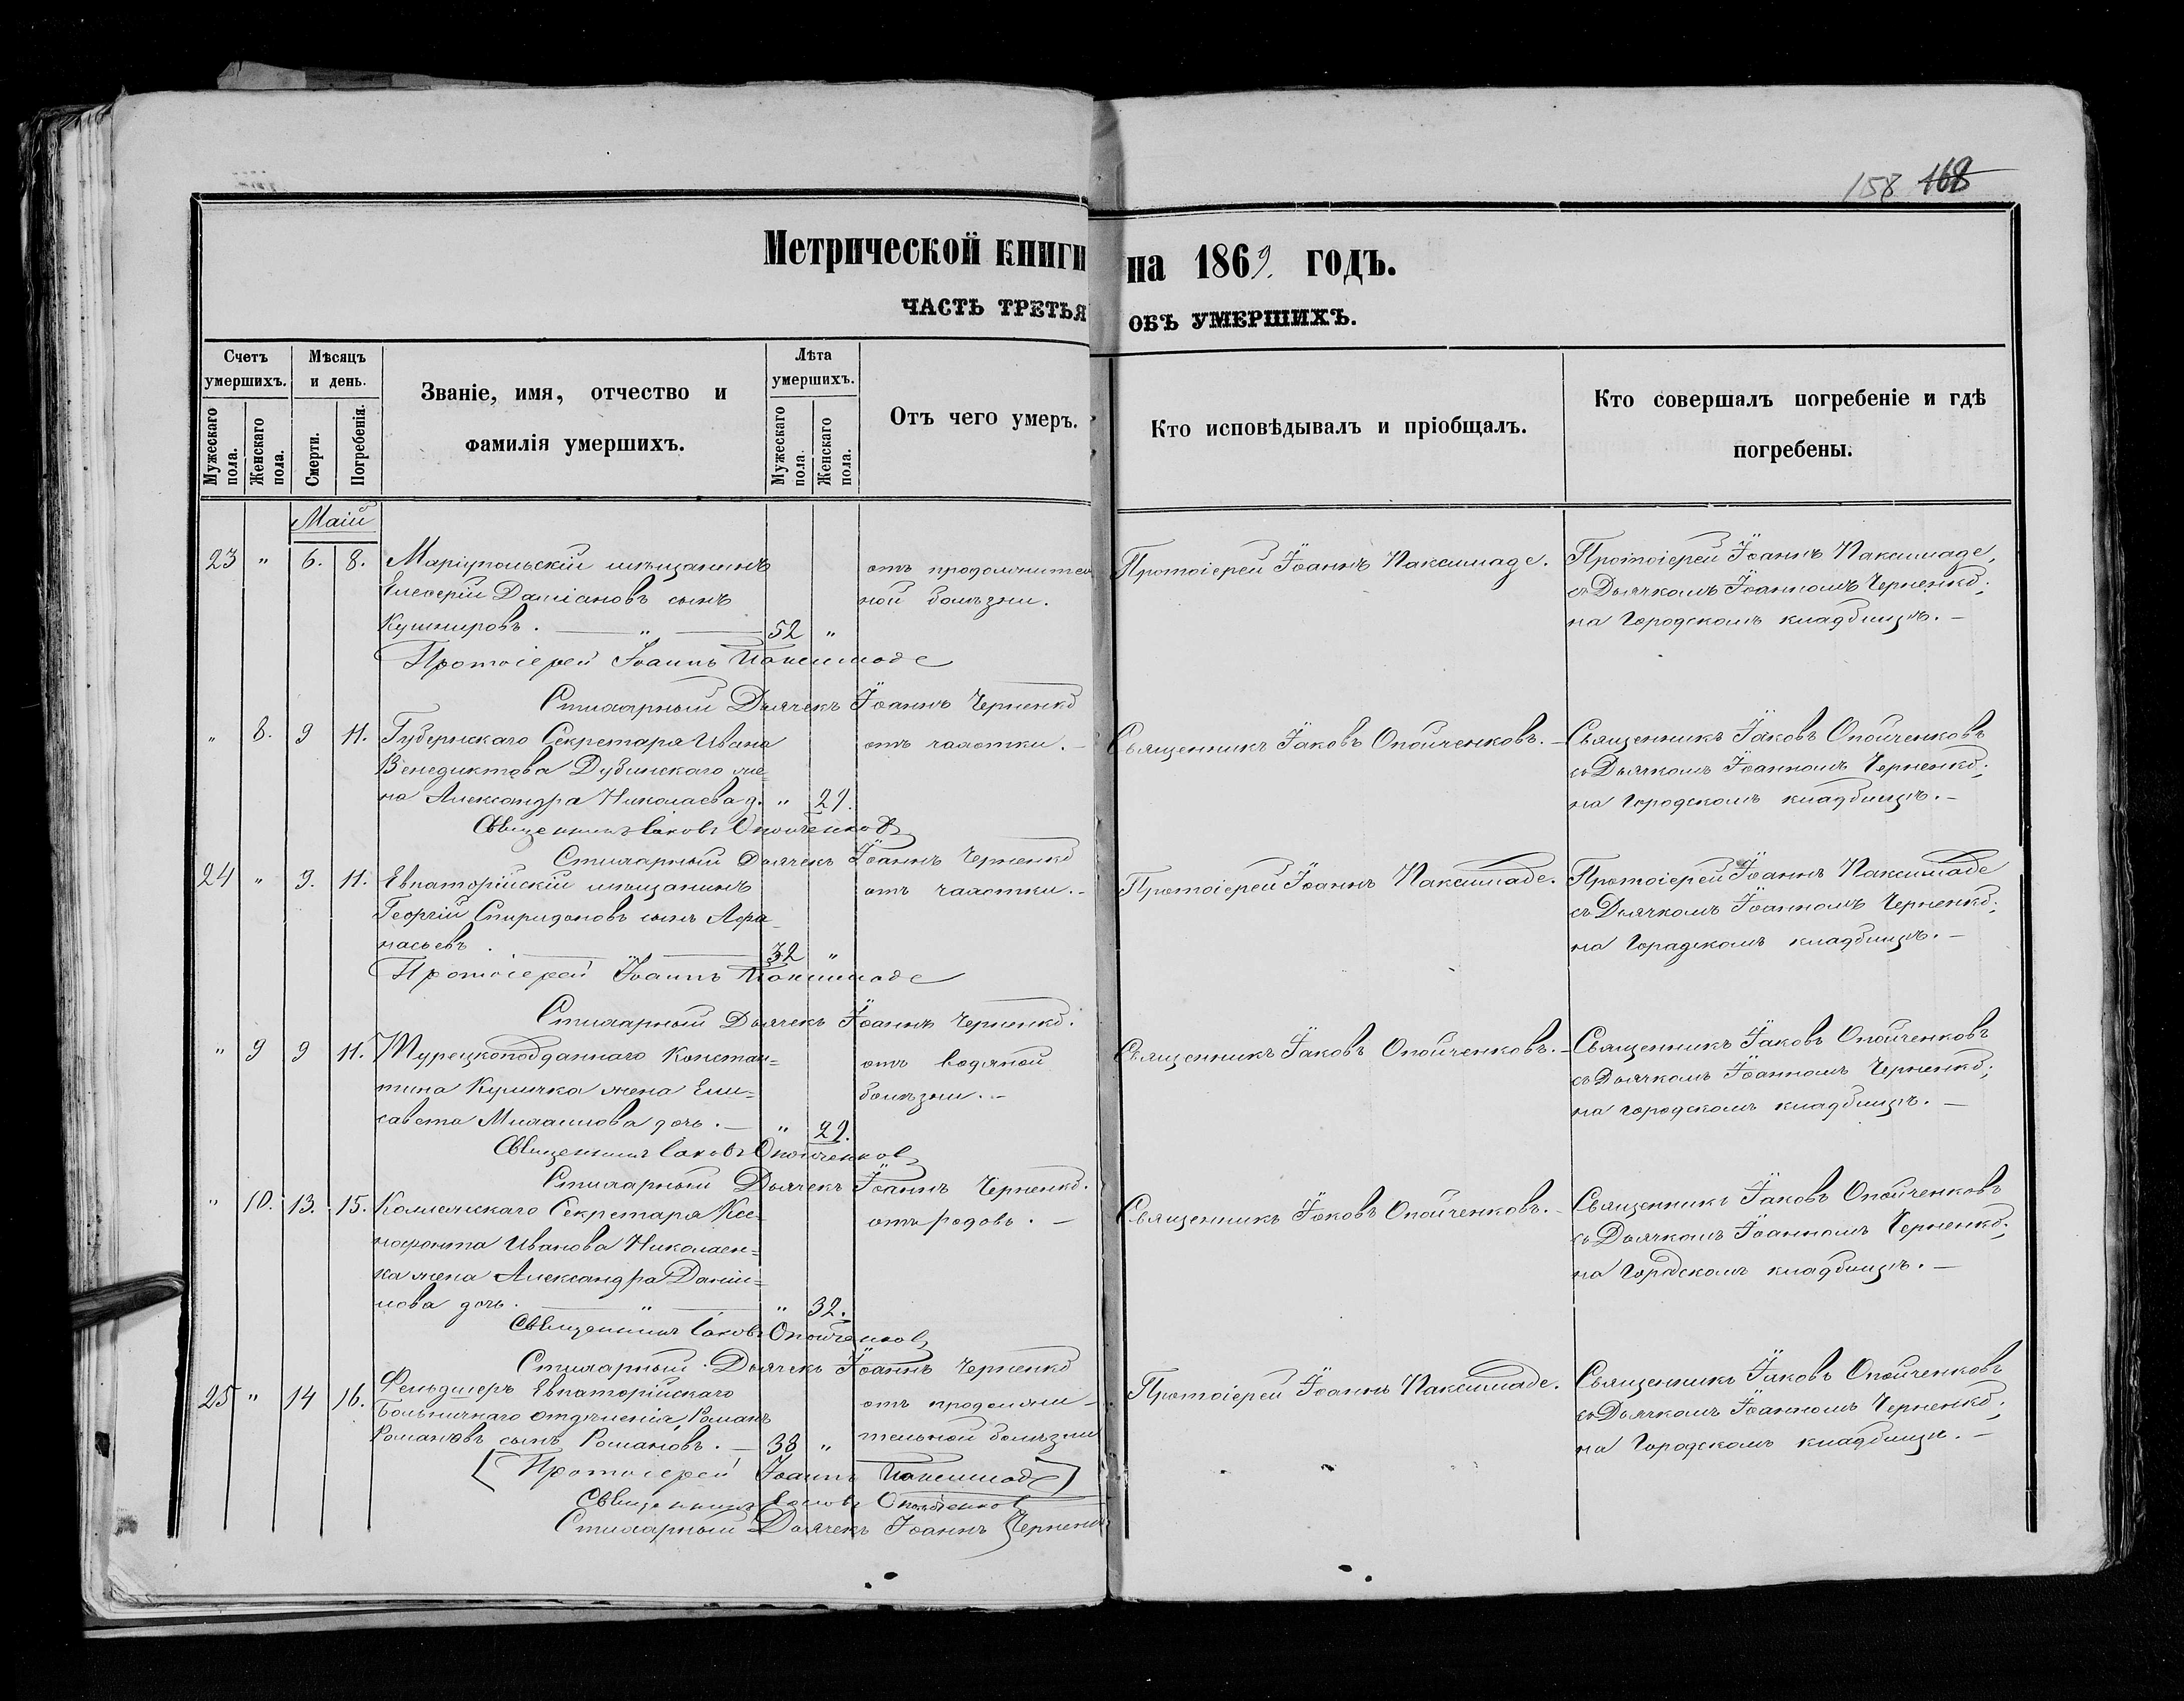 158 168
Метрической книги на 1869. годъ.
ЧАСТЬ ТРЕТЬЯ ОБЪ УМЕРШИХЪ.
Счетъ умершихъ.
Мужескаго пола.
Женскаго пола.
Мѣсяцъ и день.
Смерти.
Погребенія.
Званіе, имя, отчество и фамилія умершихъ.
Лѣта умершихъ.
Мужескаго пола.
Женскаго пола.
Отъ чего умеръ.
Кто исповѣдывалъ и пріобщалъ.
Кто совершалъ погребеніе и гдѣ погребены.
Маій
23 " 6. 8. Маріупольскій мѣщанинъ отъ продолжител Протоіерей Іоаннъ Паксимаде. Протоіерей Іоаннъ Паксимаде,
Елевѳерій Даміановъ сынъ ной болѣзни. съ Дьячкомъ Іоанномъ Черненко;
Кушнировъ. — " — 52 " на Городскомъ кладбищѣ. —
Протоіерей Іоаннъ Паксимаде
Стихарный Дьячекъ Іоаннъ Черненко
" 8. 9 11. Губернскаго Секретаря Ивана отъ чахотки. — Священникъ Іаковъ Опойченковъ. — Священникъ Іаковъ Опойченковъ
Венедиктова Дубинскаго же- съ Дьячкомъ Іоанномъ Черненко;
на Александра Николаева д. " 29. на Городскомъ кладбищѣ. —
Священникъ Іаковъ Опойченковъ
Стихарный Дьячекъ Іоаннъ Черненко
24 " 9. 11. Евпаторійскій мѣщанинъ отъ чахотки. — Протоіерей Іоаннъ Паксимаде. Протоіерей Іоаннъ Паксимаде
Георгій Спиридоновъ сынъ Афа- съ Дьячкомъ Іоанномъ Черненко;
насьевъ. — " — 32 " на Городскомъ кладбищѣ. —
Протоіерей Іоаннъ Паксимаде
Стихарный Дьячекъ Іоаннъ Черненко.
" 9 9 11. Турецкоподданнаго Констан= отъ водяной Священникъ Іаковъ Опойченковъ. — Священникъ Іаковъ Опойченковъ
тина Куличка жена Ели= болѣзни. — съ Дьячкомъ Іоанномъ Черненко;
савета Михаилова дочь. — " 29. на городскомъ кладбищѣ. —
Священникъ Іаковъ Опойченковъ
Стихарный Дьячекъ Іоаннъ Черненко.
" 10. 13. 15. Коллежскаго Секретаря Ксе= отъ родовъ. — Священникъ Іаковъ Опойченковъ. — Священникъ Іаковъ Опойченковъ
нофонта Иванова Николаен= съ Дьячкомъ Іоанномъ Черненко;
ка жена Александра Даніи= на Городскомъ кладбищѣ. —
лова дочь. — " — " 32.
Священникъ Іаковъ Опойченковъ
Стихарный Дьячекъ Іоаннъ Черненко
25 " 14 16. Фельдшеръ Евпаторійскаго отъ продолжи- Протоіерей Іоаннъ Паксимаде. Священникъ Іаковъ Опойченковъ
Больничнаго отдѣленія, Романъ тельной болѣзни съ Дьячкомъ Іоанномъ Черненко;
Романовъ сынъ Романовъ. — 38 " на Городскомъ кладбищѣ. —
[Протоіерей Іоаннъ Паксимаде]
Священникъ Іаковъ Опойченковъ
Стихарный Дьячекъ Іоаннъ Черненко